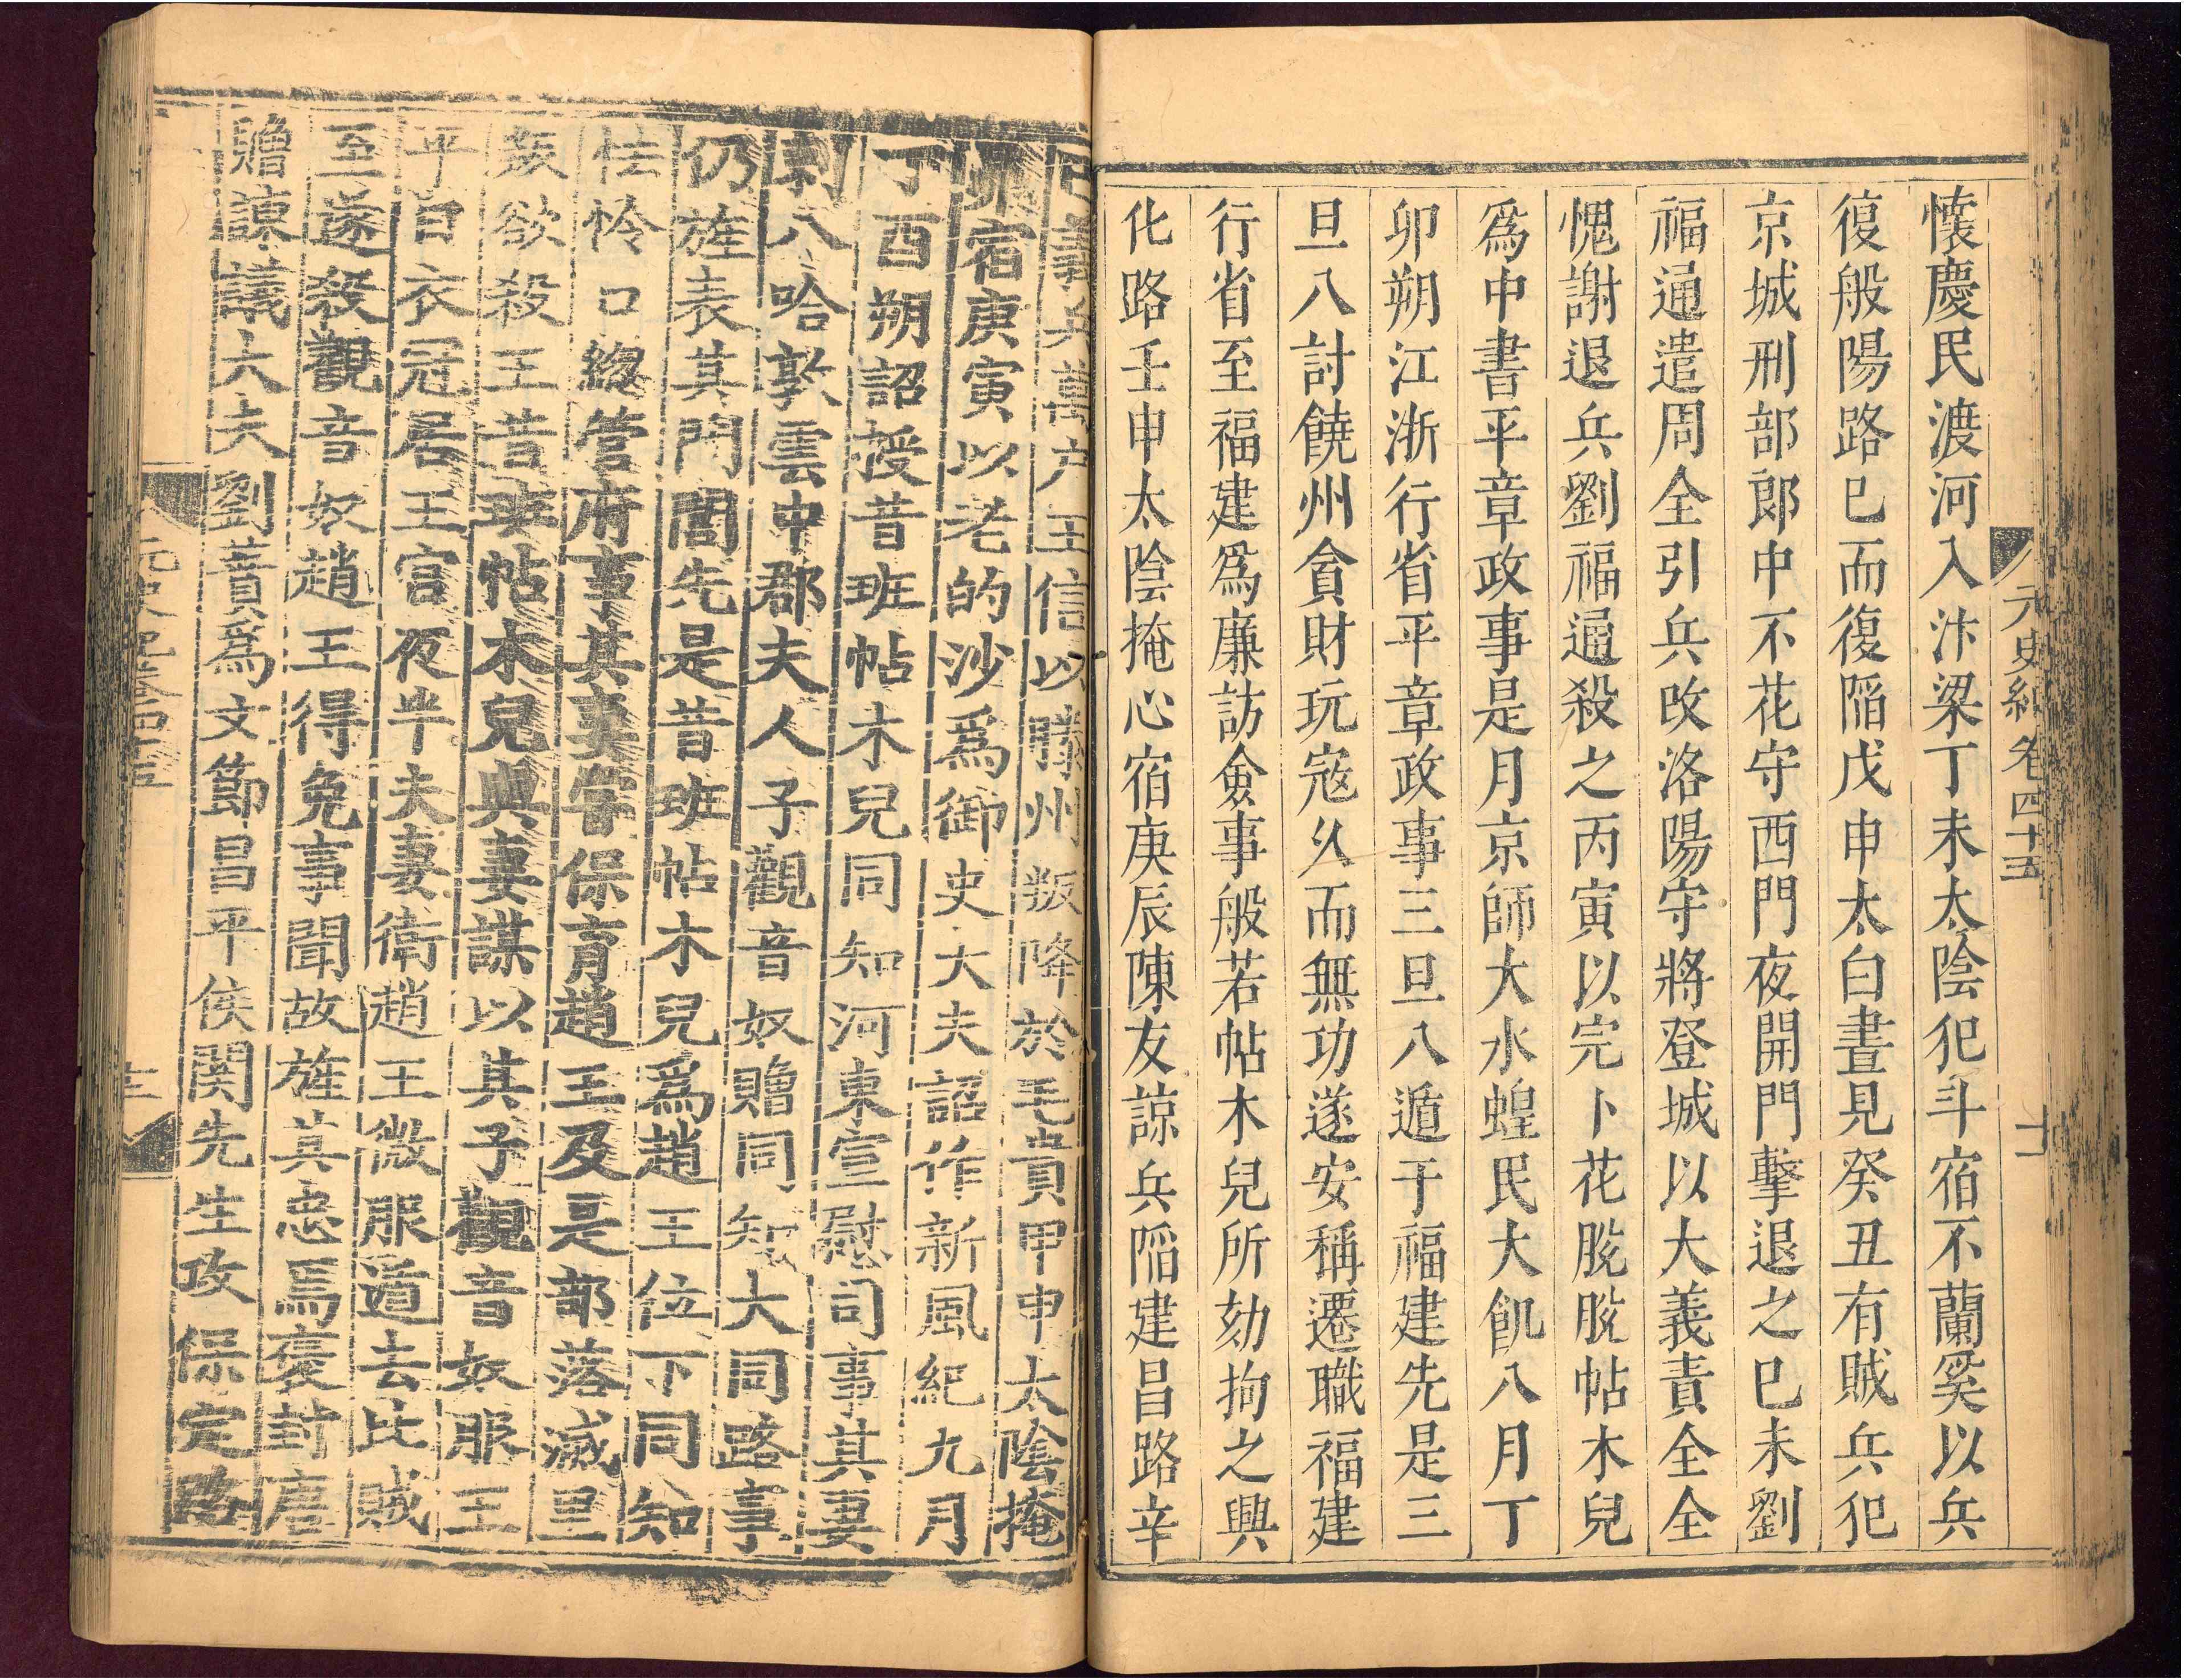 懷慶民渡河入汴梁丁未太陰犯斗宿不蘭奚以兵
復般陽路已而復陷戊申太白晝見癸丑有賊兵犯
京城刑部郎中不花守西門夜開門擊退之己未劉
福通遣周全引兵攻洛陽守將登城以大義責全全
愧謝退兵劉福通殺之丙寅以完卜花脫脫帖木兒
爲中書平章政事是月京師大水蝗民大飢八月丁
卯朔江浙行省平章政事三旦八遁于福建先是三
旦八討饒州貪財玩寇久而無功遂妄稱遷職福建
行省至福建爲廉訪僉事般若帖木兒所劾拘之興
化路壬申太陰掩心宿庚辰陳友諒兵陷建昌路辛
元史紀卷四十五
十一
義兵萬户王信以滕州叛降於毛貴甲申太陰掩
昴宿庚寅以老的沙爲御史大夫詔作新風紀九月
丁酉朔詔授昔班帖木兒同知河東宣慰司事其妻
剌八哈敦雲中郡夫人子觀音奴贈同知大同路事
仍旌表其門閭先是昔班帖木兒爲趙王位下同知
怯怜口總管府事其妻嘗保育趙王及是部落滅里
叛欲殺王昔班帖木兒與妻謀以其子觀音奴服王
平日衣冠居王宮夜半夫妻衛趙王微服遁去比賊
至遂殺觀音奴趙王得免事聞故旌其忠焉褒封唐
贈諫議大夫劉蕡爲文節昌平侯関先生攻保定路